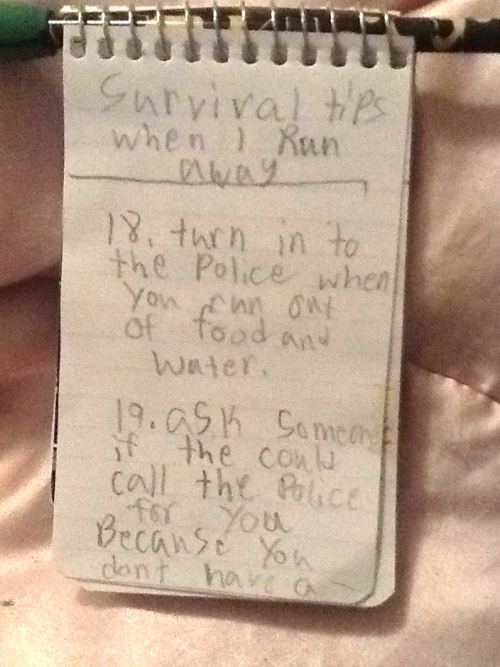 Survival tips
when I Run
away
18. turn in to
the Police when
You run out
of food and
water.
19. ask someone
if the could
call the Police
for you
Because You
dont have a